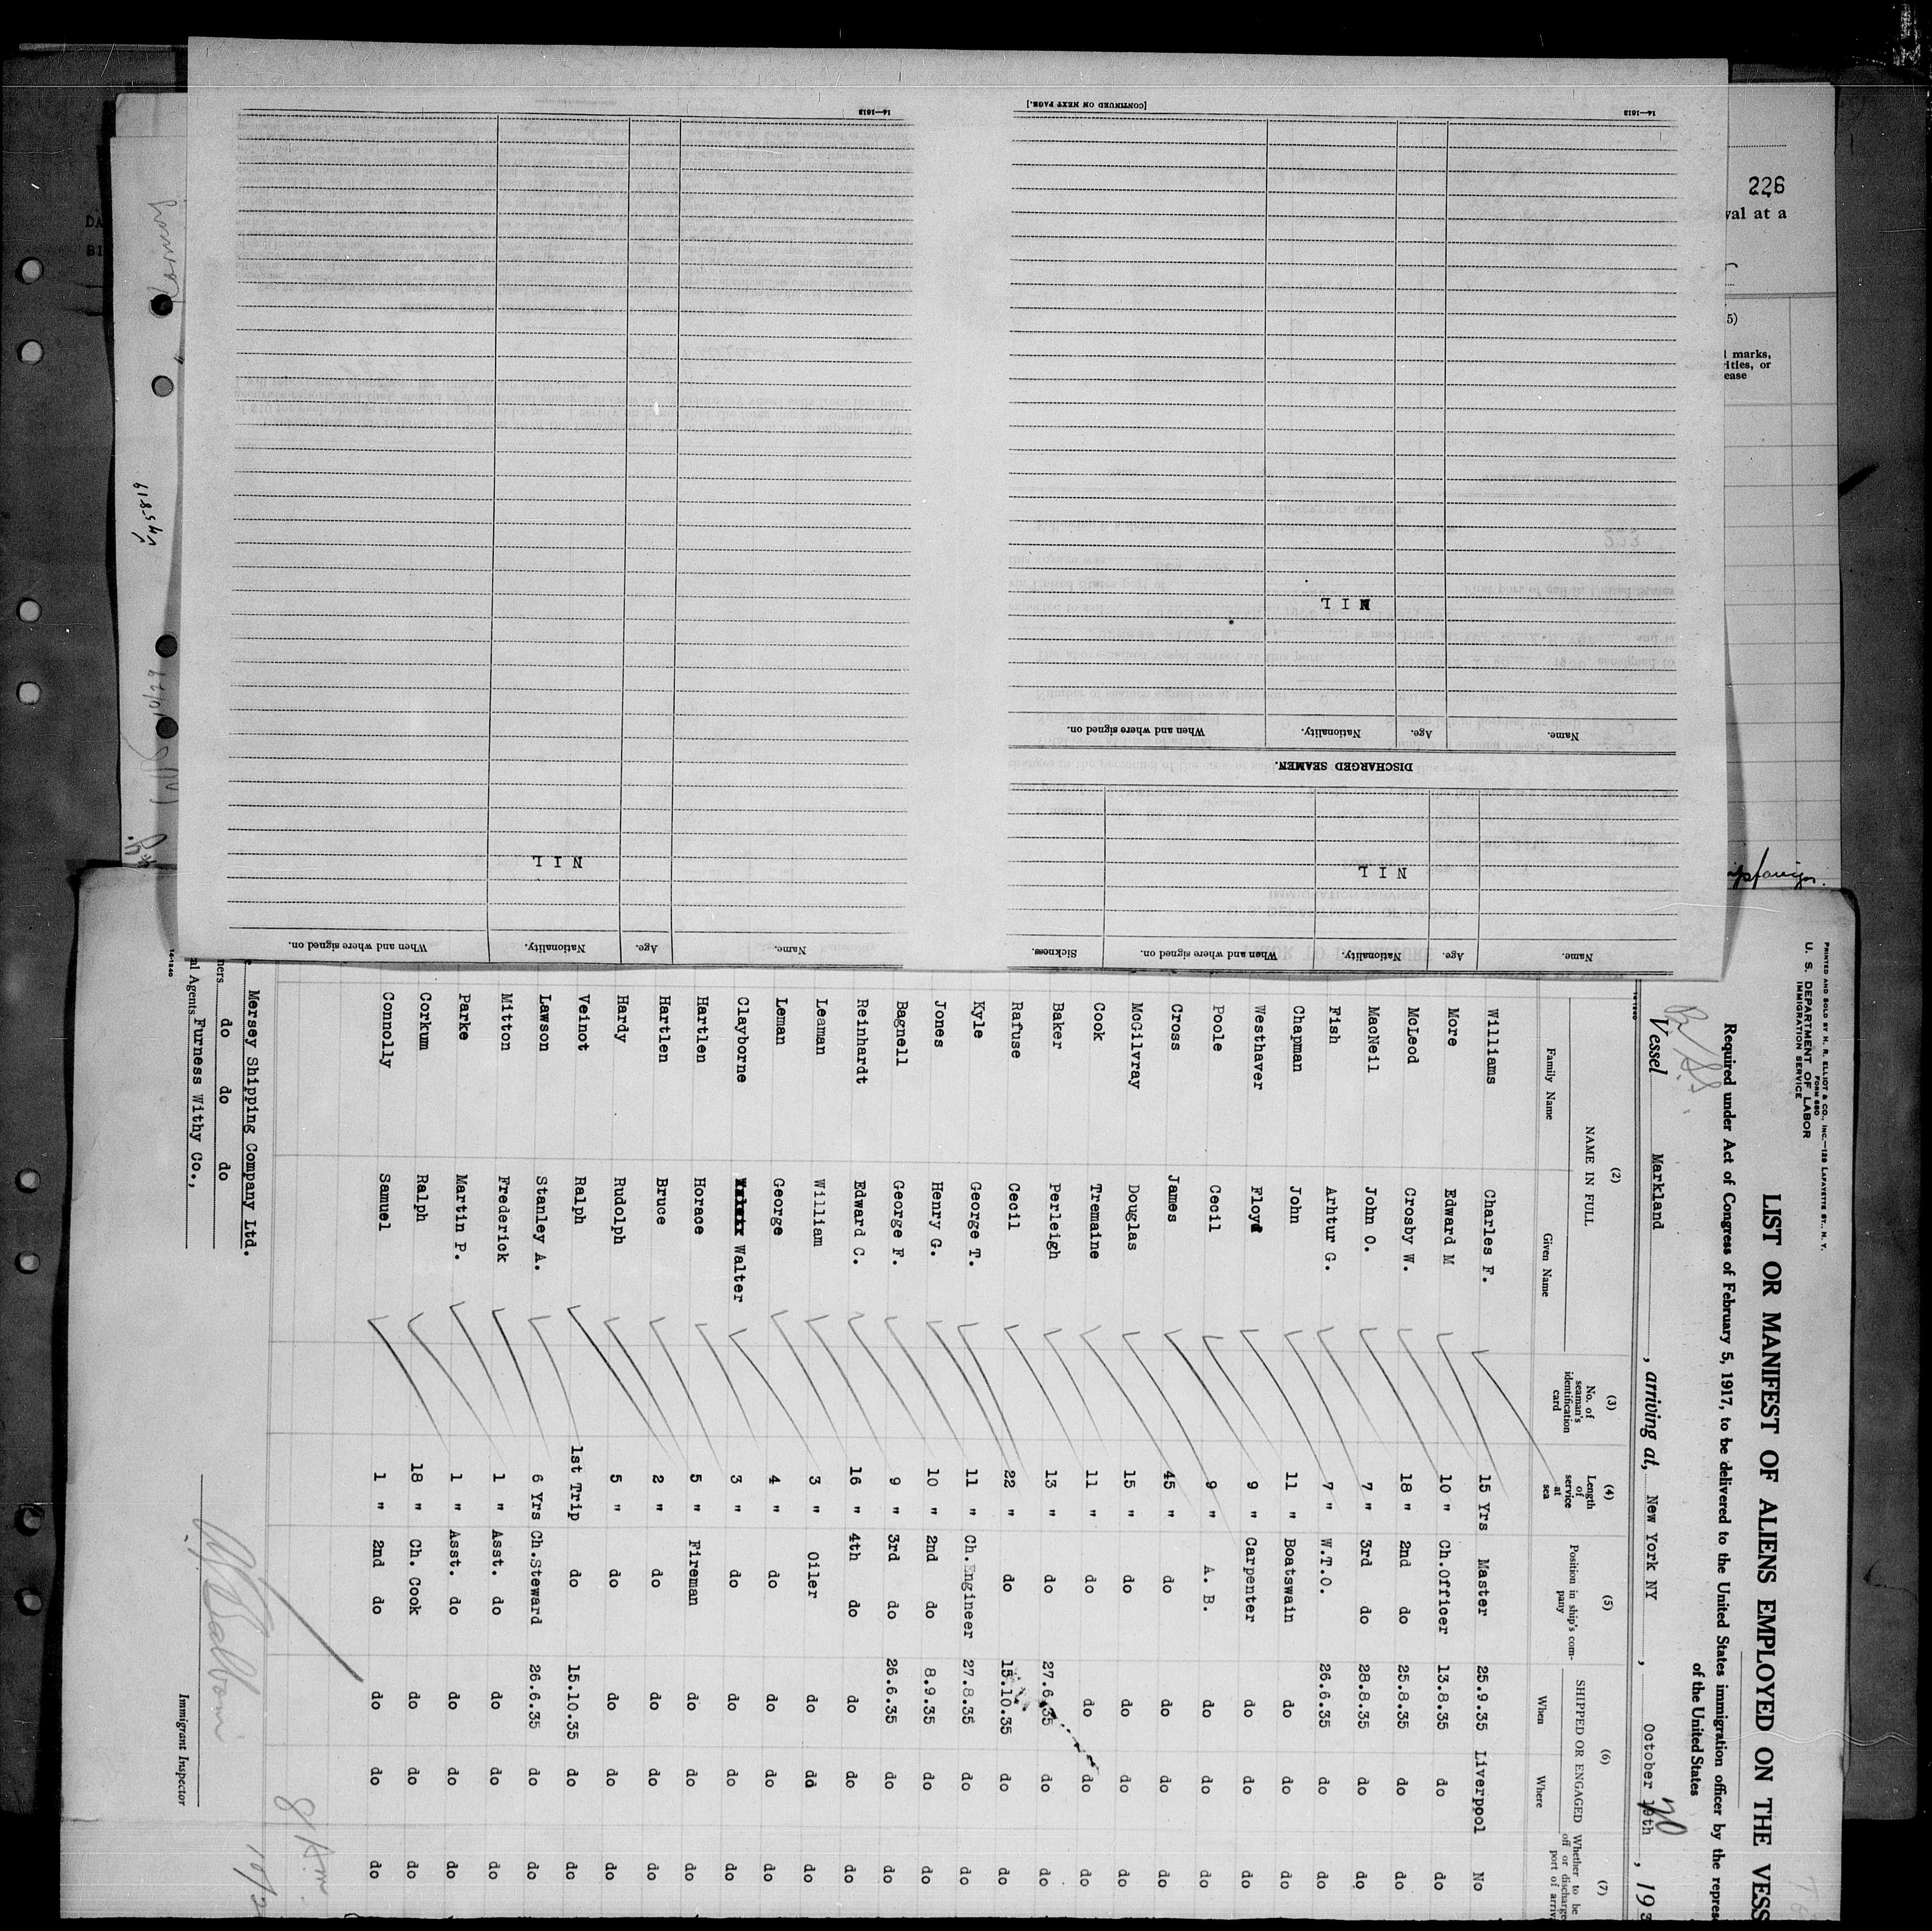 226
val at a
5)
l marks,
rities, or
ease
[CONTINUED ON NEXT PAGE.]
14—1613
14—1613
Name. Age. Nationality. When and where signed on. Sickness.
NIL
DISCHARGED SEAMEN.
Name. Age. Nationality. When and where signed on.
NIL
Name. Age. Nationality. When and where signed on.
NIL
PRINTED AND SOLD BY H. R. ELLIOT & CO., INC.—129 LAFAYETTE ST., N. Y.
FORM 680
U. S. DEPARTMENT OF LABOR
IMMIGRATION SERVICE
LIST OR MANIFEST OF ALIENS EMPLOYED ON THE VESS
Required under Act of Congress of February 5, 1917, to be delivered to the United States immigration officer by the repres
of the United States
Vessel Markland, arriving at, New York NY, October 19th 20, 193
(2) (3) (4) (5) (6) (7)
NAME IN FULL
Family Name Given Name
No. of seaman's identification card
Length of service at sea
Position in ship's company
SHIPPED OR ENGAGED
When Where
Whether to be
off or discharge
port of arriv
Williams Charles F. 15 Yrs Master 25.9.35 Liverpool No
More Edward M 10 " Ch.Officer 13.8.35 do do
McLeod Crosby W. 18 " 2nd do 25.8.35 do do
MacNeil John O. 7 " 3rd do 28.8.35 do do
Fish Arhtur G. 7 " W.T.O. 26.6.35 do do
Chapman John 11 " Boatswain do do do
Westhaver Floyd 9 " Carpenter do do do
Poole Cecil 9 " A. B. do do do
Cross James 45 " do do do do
McGilvray Douglas 15 " do do do do
Cook Tremaine 11 " do do do do
Baker Perleigh 13 " do 27.6.35 do do
Rafuse Cecil 22 " do 15.10.35 do do
Kyle George T. 11 " Ch.Engineer 27.8.35 do do
Jones Henry G. 10 " 2nd do 8.9.35 do do
Bagnell George F. 9 " 3rd do 26.6.35 do do
Reinhardt Edward C. 16 " 4th do do do do
Leaman William 3 " Oiler do do do
Leman George 4 " do do do do
Clayborne Walter 3 " do do do do
Hartlen Horace 5 " Fireman do do do
Hartlen Bruce 2 " do do do do
Hardy Rudolph 5 " do do do do
Veinot Ralph 1st Trip do 15.10.35 do do
Lawson Stanley A. 6 Yrs Ch.Steward 26.6.35 do do
Mitton Frederick 1 " Asst. do do do do
Parke Martin P. 1 " Asst. do do do do
Corkum Ralph 18 " Ch. Cook do do do
Connolly Samuel 1 " 2nd do do do do
Mersey Shipping Company Ltd.
ners do do do
al Agents Furness Withy Co.,
14-1240
Immigrant Inspector